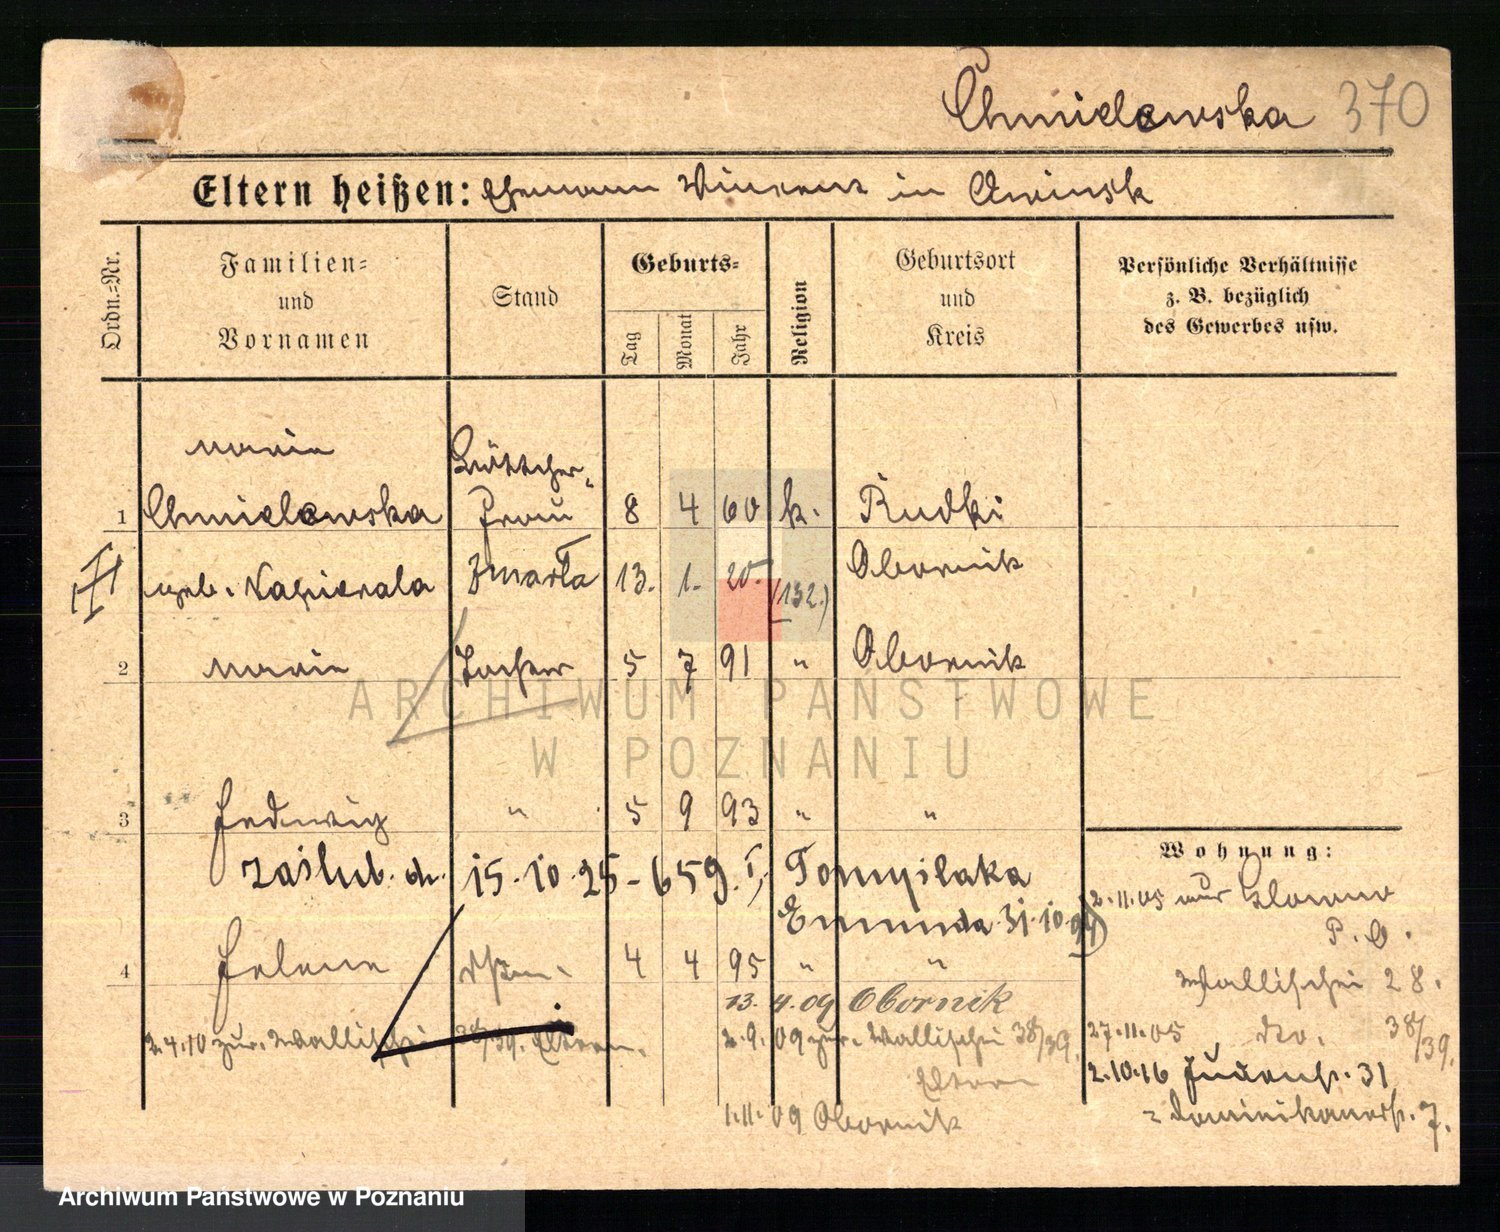 Chmielewska 370
Eltern heißen: Ehemann Vincenz in Owinsk
Ordn.-Nr.
Familien-
und
Vornamen
Stand
Geburts-
Tag
Monat
Jahr
Religion
Geburtsort
und
Kreis
Persönliche Verhältnisse
z. B. bezüglich
des Gewerbes usw.
Marie Böttcher-
1 Chmielewska Frau 8 4 60 k. Rudki
geb. Napierala zmarła 13. 1. 25 (132.) Obornik
2 Marie Tochter 5 7 91 " Obornik
ARCHIWUM PAŃSTWOWE
W POZNANIU
3 Hedwig " 5 9 93 " "
zaślub. dn. 15.10.25 - 659. I, Tomysłaka
Edmunda 31.10.
4 Helene 4 4 95 " "
13. 4. 09 Obornik
2.4.10 zur. Wallischei 38/39. Eltern.
2.9.09 zur. Wallischei 38/39.
Eltern
1.11.09 Obornik
Wohnung:
2.11.05 aus
P. O.
Wallischei 28.
27.11.05 do. 38/39.
2.10.16 Judenstr. 31
= Dominikanerstr. 7.
Archiwum Państwowe w Poznaniu